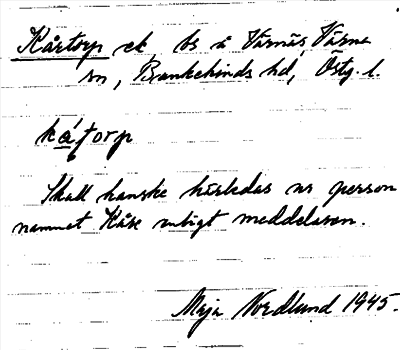 Kårtorp ck, bs å Värnäs, Värna
sn, Bankekinds hd, Östg. l.
kå´ʈorp
Skall kanske härledas ur person
namnet Kåre enligt meddelaren.
Maja Nordlund 1945.